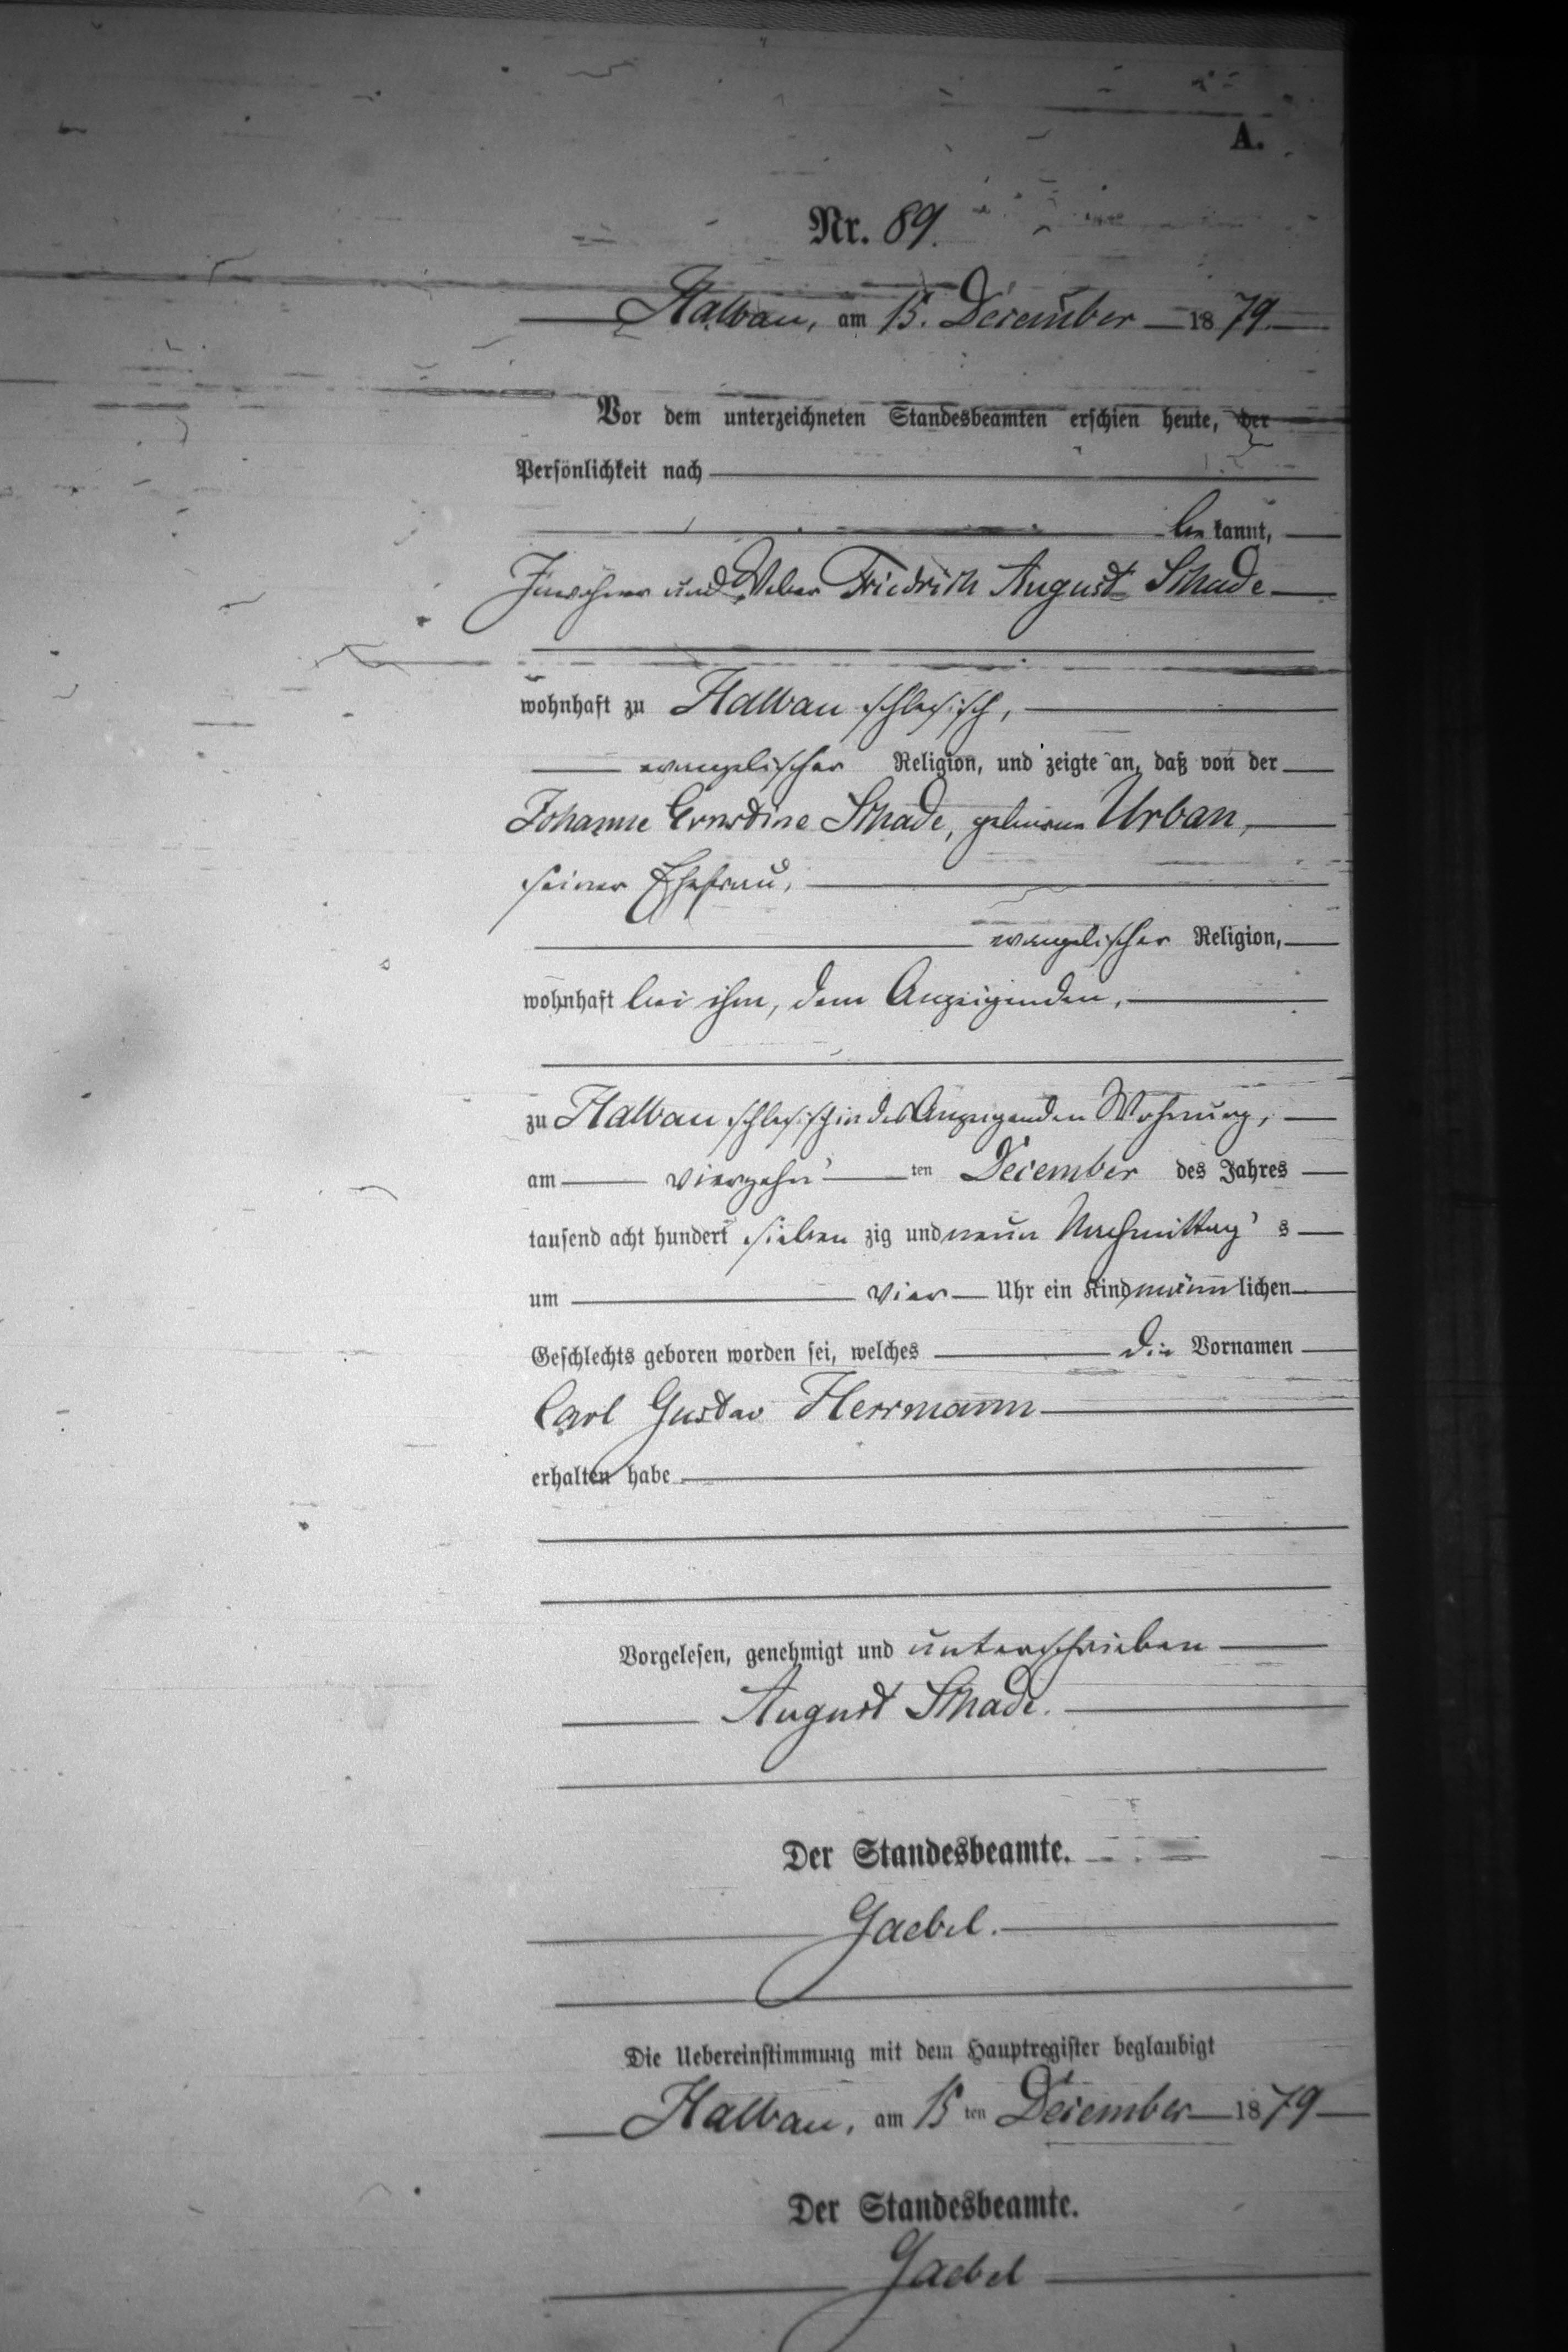 A.
Nr. 89.
Halbau, am 15. December 1879.
Vor dem unterzeichneten Standesbeamten erschien heute, der
Persönlichkeit nach
bekannt,
Inwohner und Weber Friedrich August Schade
wohnhaft zu Halbau schlesisch,
evangelischer Religion, und zeigte an, daß von der
Johanne Ernestine Schade, geborene Urban,
seiner Ehefrau,
evangelischer Religion,
wohnhaft bei ihm, dem Anzeigenden,
zu Halbau schlesisch in des Anzeigenden Wohnung,
am vierzehnten December des Jahres
tausend acht hundert siebenzig und neun Nachmittags
um vier Uhr ein Kind männlichen
Geschlechts geboren worden sei, welches die Vornamen
Carl Gustav Herrmann
erhalten habe
Vorgelesen, genehmigt und unterschrieben
August Schade.
Der Standesbeamte.
Gaebel.
Die Uebereinstimmung mit dem Hauptregister beglaubigt
Halbau, am 15ten December 1879
Der Standesbeamte.
Gaebel